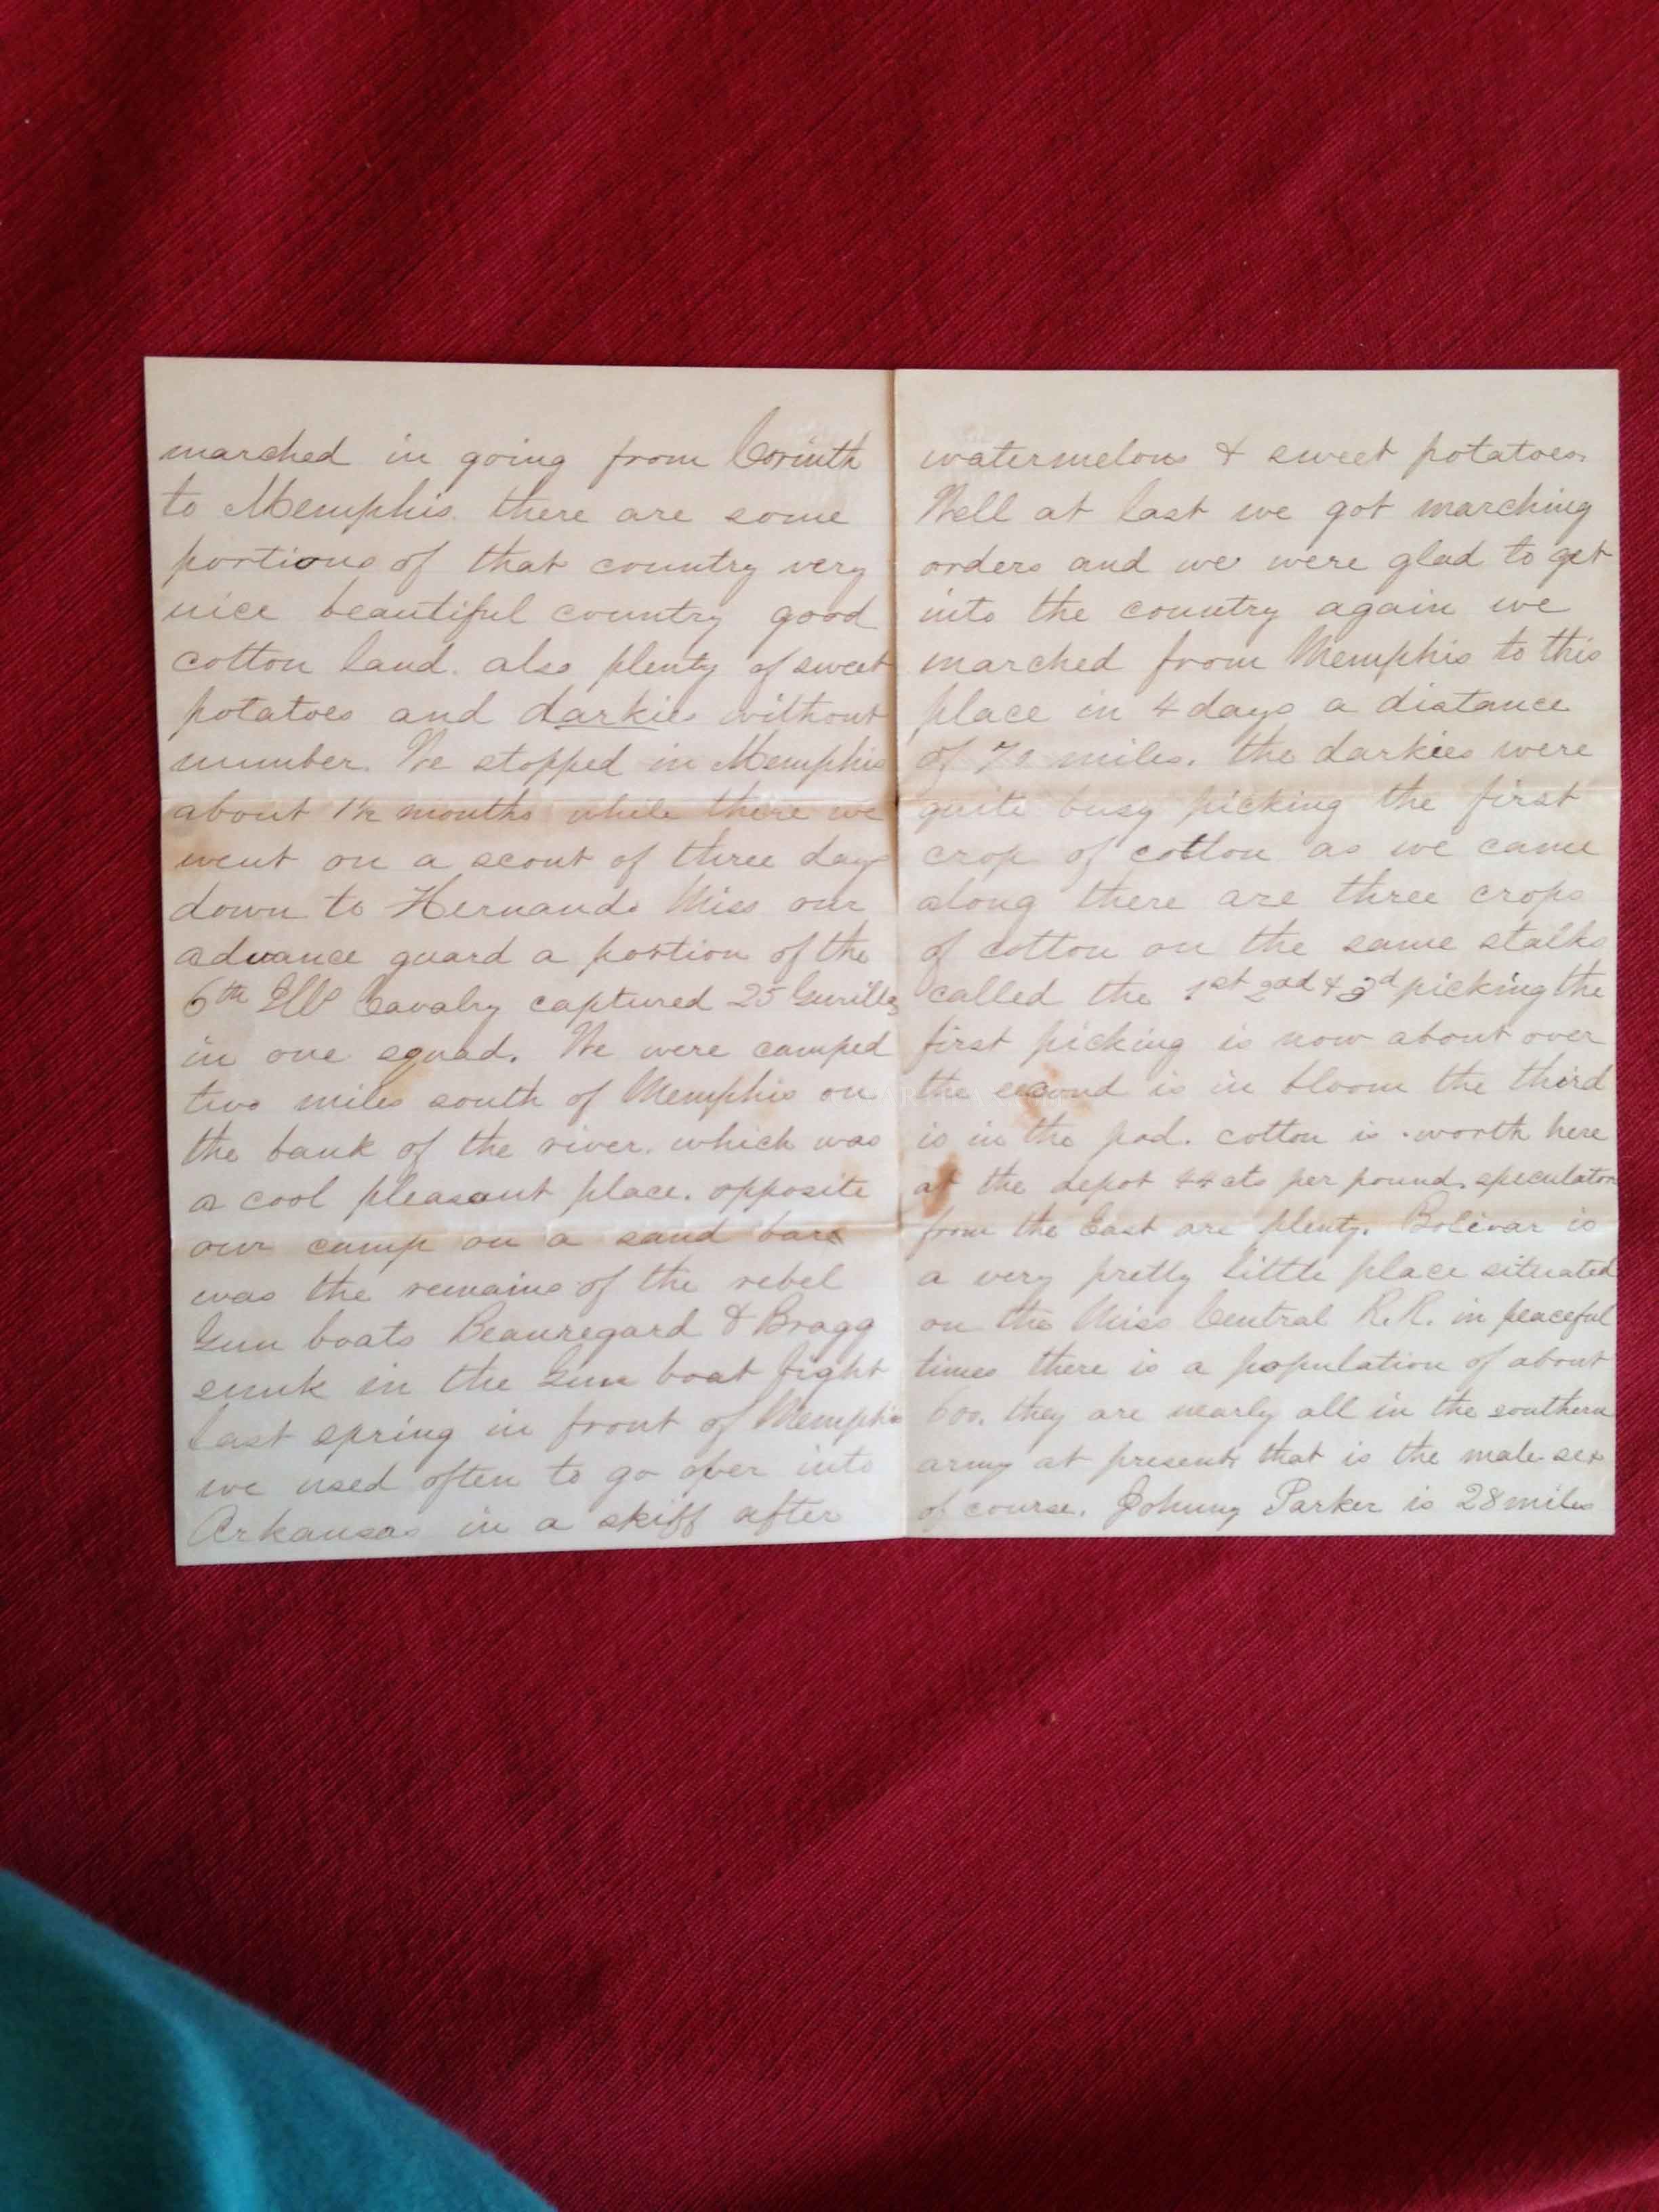 marched in going from Corinth
to Memphis. there are some
portions of that country very
nice beautiful country good
cotton land. also plenty of sweet
potatoes and darkies without
number. We stopped in Memphis
about 1½ months while there we
went on a scout of three days
down to Hernando Miss our
advance guard a portion of the
6th Ills Cavalry captured 25 Gurillas
in one squad. We were camped
two miles south of Memphis on
the bank of the river. which was
a cool pleasant place. opposite
our camp on a sand bar
was the remains of the rebel
Gun boats Beauregard & Bragg
sunk in the Gun boat fight
last spring in front of Memphis
we used often to go over into
Arkansas in a skiff after
watermelons & sweet potatoes.
Well at last we got marching
orders and we were glad to get
into the country again we
marched from Memphis to this
place in 4 days a distance
of 70 miles. the darkies were
quite busy picking the first
crop of cotton as we came
along there are three crops
of cotton on the same stalks
called the 1st 2nd & 3d picking the
first picking is now about over
the second is in bloom the third
is in the pod. cotton is worth here
at the depot cts per pound. speculators
from the East are plenty. Bolivar is
a very pretty little place situated
on the Miss Central R.R. in peaceful
times there is a population of about
600. they are nearly all in the southern
army at present that is the male sex
of course. Johnny Parker is 28 miles